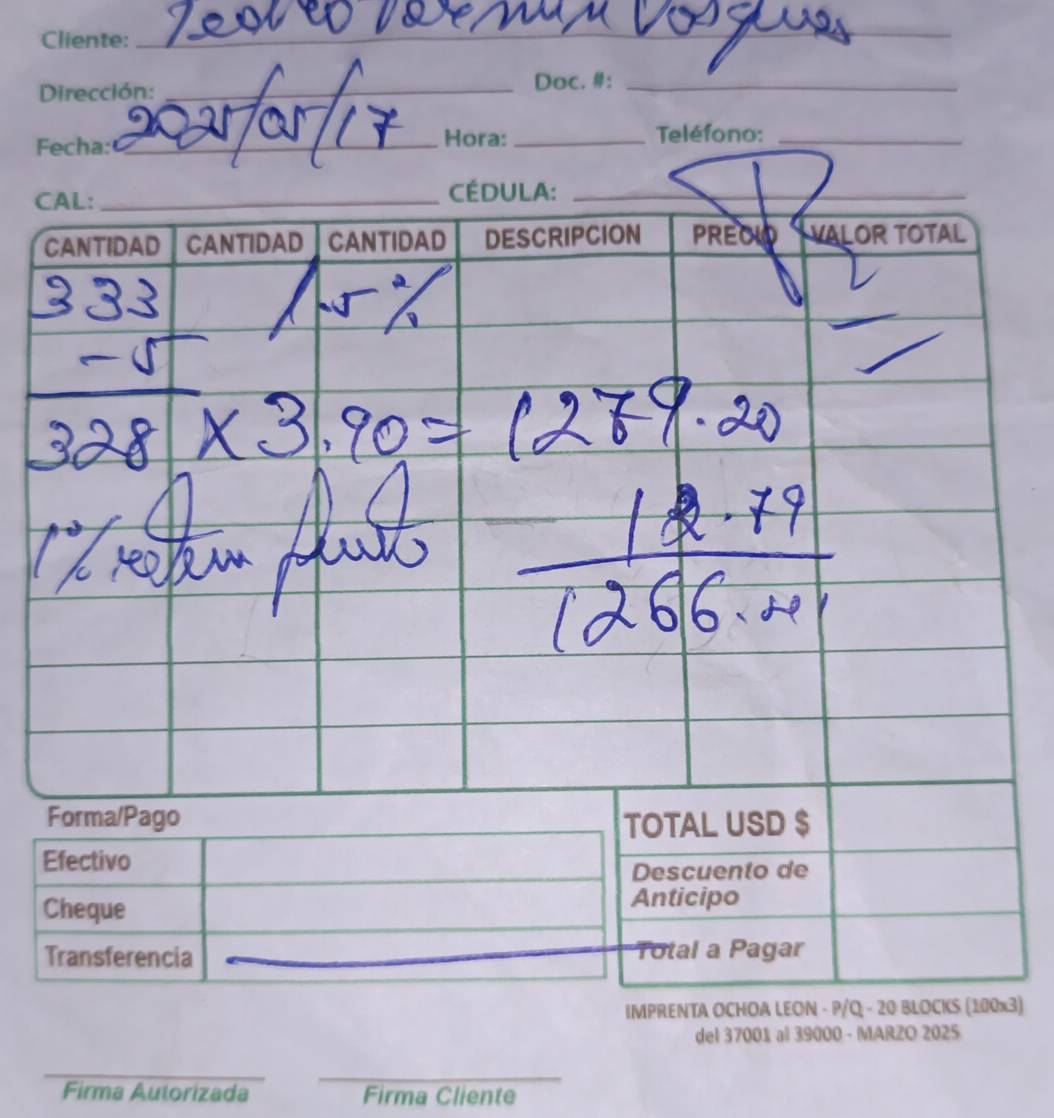 Cliente: Pedro Vasques
Dirección: Doc. #:
Fecha: 2025/05/17 Hora: Teléfono:
CAL: CÉDULA:
CANTIDAD CANTIDAD CANTIDAD DESCRIPCION PRECIO VALOR TOTAL
333 1.5%
-5
328 X 3.90= 1279.20
1% 12.79
1266.41
Forma/Pago
TOTAL USD $
Efectivo
Descuento de
Anticipo
Cheque
Transferencia
Total a Pagar
IMPRENTA OCHOA LEON - P/Q - 20 BLOCKS (100x3)
del 37001 al 39000 - MARZO 2025
Firma Autorizada Firma Cliente